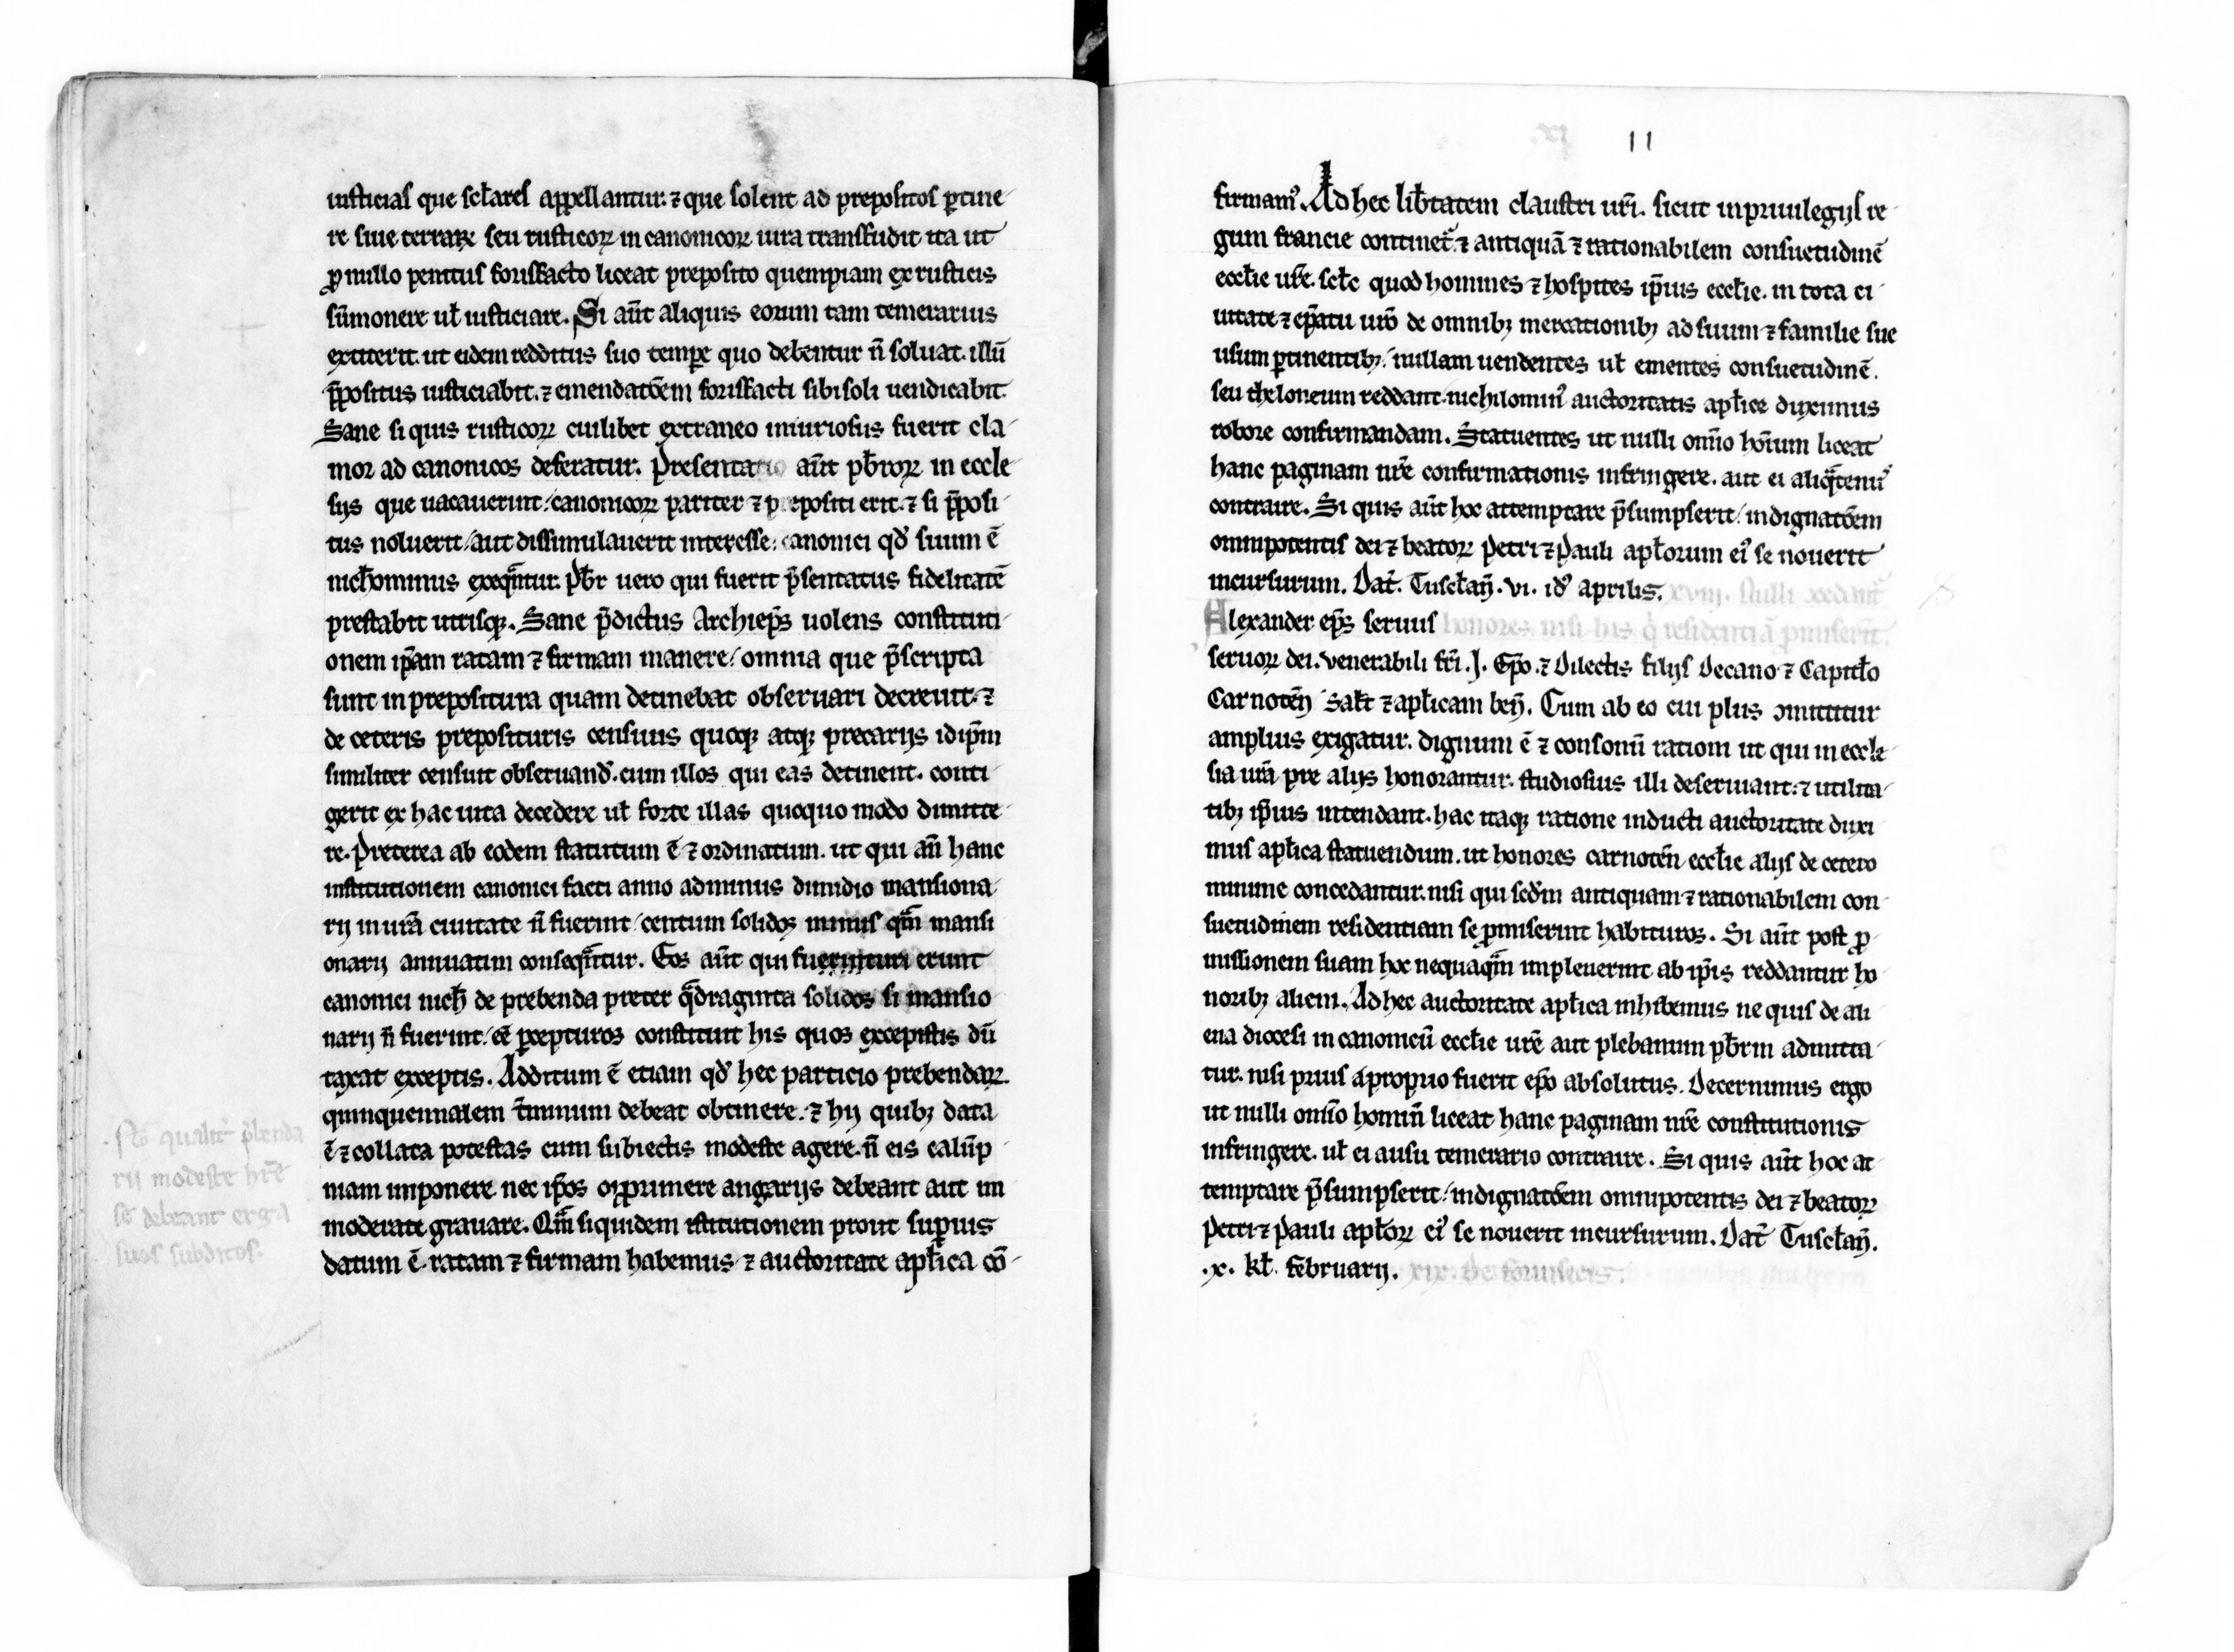 iusticias que scłares appellantur. ⁊ que solent ad prepositos ꝑtine-
re siue terraꝝ seu rusticoꝝ in canonicoꝝ iura transfudit ita ut
ꝓ nullo penitus forisfacto liceat preposito quempiam ex rusticis
sūmonere uł iusticiare. Si aūt aliquis eorum tam temerarius
extiterit. ut eidem redditus suo tempore quo debentur n̄ soluat. illū
p̄positus iusticiabit. ⁊ emendatōem forisfacti sibi soli uendicabit.
Sane si quis rusticoꝝ cuilibet extraneo iniuriosus fuerit cla-
mor ad canonicos deferatur. Presentatio aūt pb̄roꝝ in eccle-
sijs que uacauerint/ canonicoꝝ pariter ⁊ prepositi erit. ⁊ si p̄posi-
tus noluerit/ aut dissimulauerit interesse/ canonici qđ suum ē
nicħominus exeq̄ntur. Pb̄r uero qui fuerit p̄sentatus fidelitatē
prestabit utrisqꝫ. Sane p̄dictus Archiep̄s uolens constituti-
onem ip̄am ratam ⁊ firmam manere/ omnia que p̄scripta
sunt in prepositura quam detinebat obseruari decreuit. ⁊
de ceteris preposituris censuus quoqꝫ atqꝫ precarijs idip̄m
similiter censuit obseruanđ. cum illos qui eas detinent. conti-
gerit ex hac uita decedere uł forte illas quoquo modo dimitte-
re. Preterea ab eodem statutum ē ⁊ ordinatum. ut qui an̄ hanc
institutionem canonici facti anno adminus dimidio mansiona-
rij in urā ciuitate n̄ fuerint/ centum solidos minus qm̄ mansi-
onarij annuatim conseq̄ntur. Eos aūt qui fuerint erunt
canonici nicħ de prebenda preter q̄draginta solidos si mansio-
narij n̄ fuerint/ eē ꝑcepturos constituit his quos excepistis dū-
taxat exceptis. Additum ē etiam qđ hec particio prebendaꝝ
quinquennalem t̄minum debeat obtinere. ⁊ hij quibꝫ data
ē ⁊ collata potestas cum subiectis modeste agere. n̄ eis calūp-
niam imponere nec ip̄os opprimere angarijs debeant aut im-
moderate grauare. Qm̄ siquidem istitutionem prout suꝑius
datum ē. ratam ⁊ firmam habemus ⁊ auctoritate apłica cō-
qualit̄ p̄benda
rij modeste hr̄e
se debeant erga
suos subditos.
11
firmamꝰ. Ad hec lib̄tatem claustri ur̄i. sicut in priuilegijs re-
gum francie continet̄. ⁊ antiquā ⁊ rationabilem consuetudinē
eccłie ur̄e. scłc quod homines ⁊ hospites ip̄ius eccłie. in tota ci-
uitate ⁊ ep̄atu ur̄o de omnibꝫ mercationibꝫ ad suum ⁊ familie sue
usum ꝑtinentibꝫ/ nullam uendentes uł ementes consuetudinē.
seu theloneum reddant. nichilominꝰ auctoritatis apłice duximus
robore confirmandam. Statuentes ut nulli omīo hoīum liceat
hanc paginam nr̄e confirmationis infringere. aut ei aliq̄tenus
contraire. Si quis aūt hoc attemptare p̄sumpserit/ indignatōem
omnipotentis dei ⁊ beatoꝝ Petri ⁊ Pauli apłorum eiꝰ se nouerit
incursurum. Dat̄. Tuscłan̄. vi. idꝰ aprilis.
xviij. Nulli
Alexander ep̄s seruus honores nisi his q̄ residentiā ꝓmiserīt.
seruoꝝ dei. venerabili fr̄i. J. Ep̄o. ⁊ Dilectis filijs Decano ⁊ Capitło
Carnotēn Sałt ⁊ apłicam ben̄. Cum ab eo cui plus ↄmittitur
amplius exigatur. dignum ē ⁊ consonū rationi ut qui in eccle-
sia urā pre alijs honorantur. studiosius illi deseruiant. ⁊ utilita-
tibꝫ ip̄ius intendant. hac itaqꝫ ratione inducti auctoritate duxi-
mus apłica statuendum. ut honores carnotēn eccłie alijs de cetero
minime concedantur. nisi qui secđm antiquam ⁊ rationabilem con-
suetudinem residentiam se ꝓmiserint habituros. Si aūt post ꝓ-
missionem suam hoc nequaq̄m impleuerint ab ip̄is reddantur ho-
noribꝫ alieni. Ad hec auctoritate apłica inhibemus ne quis de ali-
ena diocesi in canonicū eccłie ur̄e aut plebanum pb̄rm admitta-
tur. nisi prius a proprio fuerit ep̄o absolutus. Decernimus ergo
ut nulli omīo hominū liceat hanc paginam nr̄e constitutionis
infringere. uł ei ausu temerario contraire. Si quis aūt hoc at-
temptare p̄sumpserit/ indignatōem omnipotentis dei ⁊ beatoꝝ
Petri ⁊ Pauli apłoꝝ eiꝰ se nouerit incursurum. Dat̄ Tuscłan̄.
.x. kł. februarij. xix. De forinsecis.